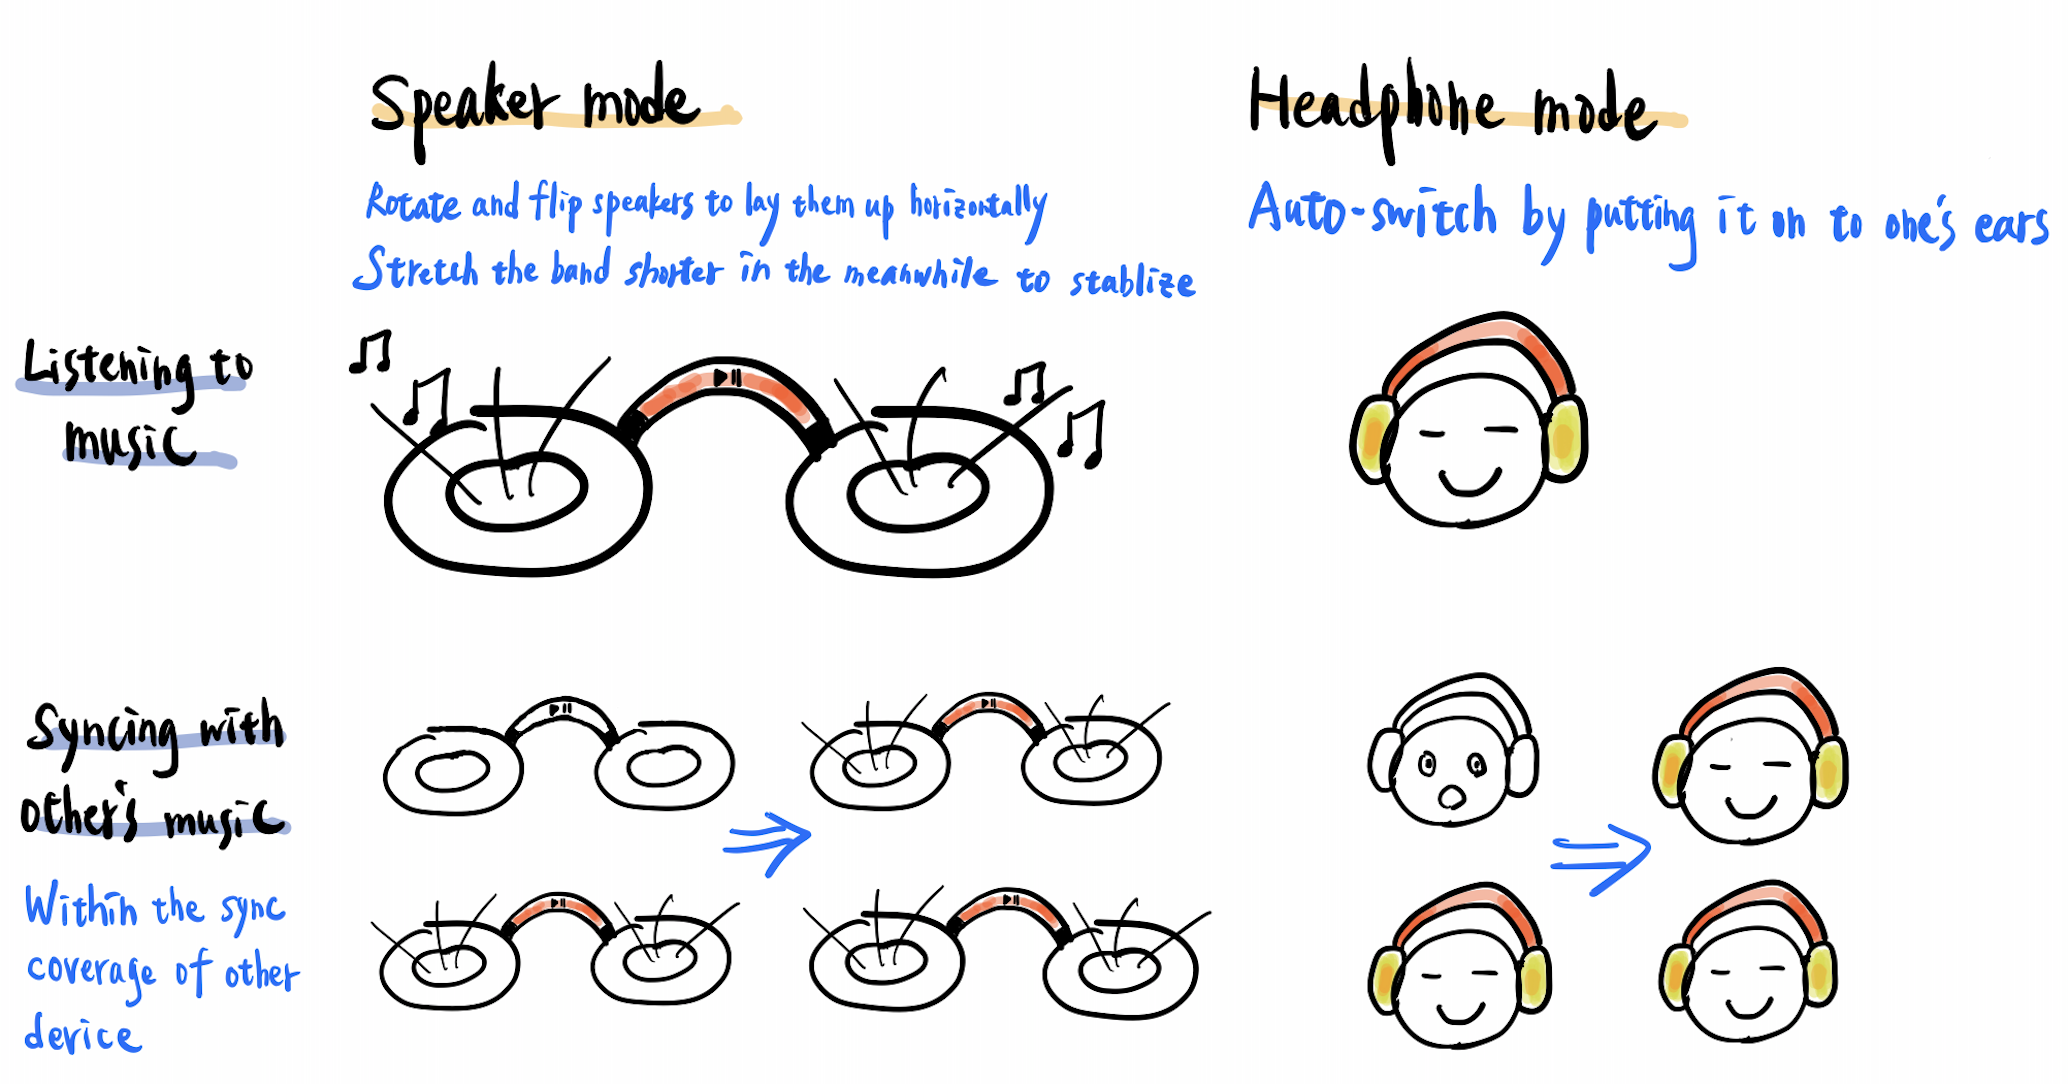 Speaker mode
Rotate and flip speakers to lay them up horizontally
Stretch the band shorter in the meanwhile to stablize
Headphone mode
Auto-switch by putting it on to one's ears
Listening to
music
Syncing with
other's music
Within the sync
coverage of other
device